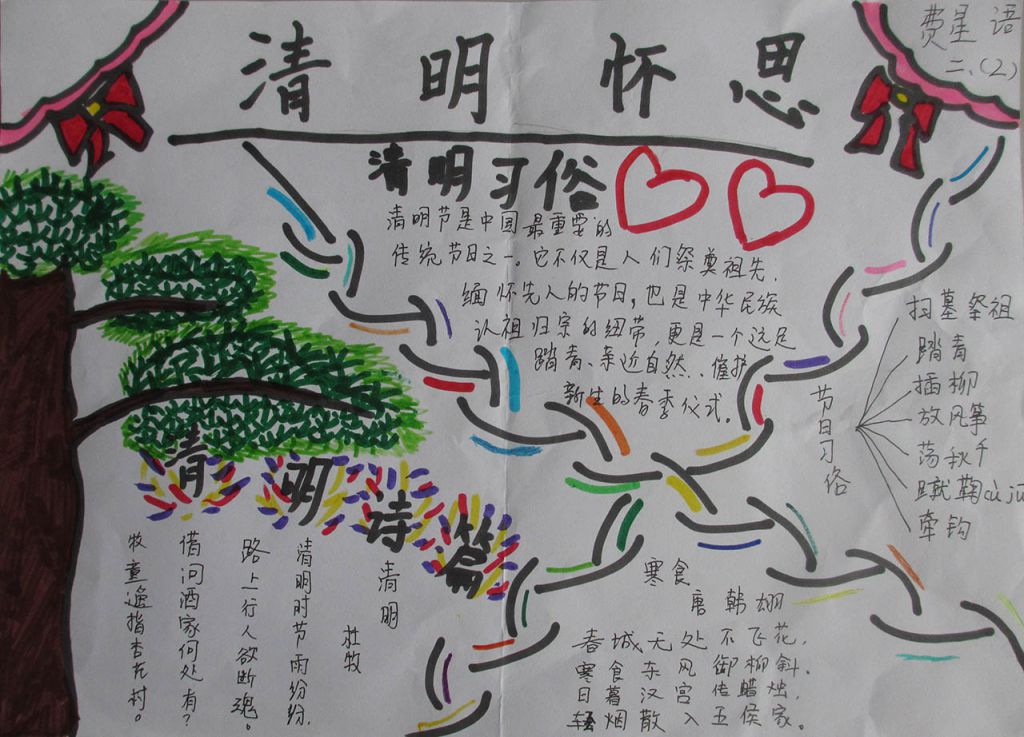 费星语
二、(2)
清明怀思
清明习俗
清明节是中国最重要的
传统节日之一。它不仅是人们祭奠祖先、
缅怀先人的节日，也是中华民族
认祖归宗的纽带，更是一个远足
踏青、亲近自然、催护
新生的春季仪式。
节日习俗
扫墓祭祖
踏青
插柳
放风筝
荡秋千
蹴鞠cù jū
牵钩
清明诗篇
清明
杜牧
清明时节雨纷纷，
路上行人欲断魂。
借问酒家何处有？
牧童遥指杏花村。
寒食
唐 韩翃
春城无处不飞花，
寒食东风御柳斜。
日暮汉宫传蜡烛，
轻烟散入五侯家。